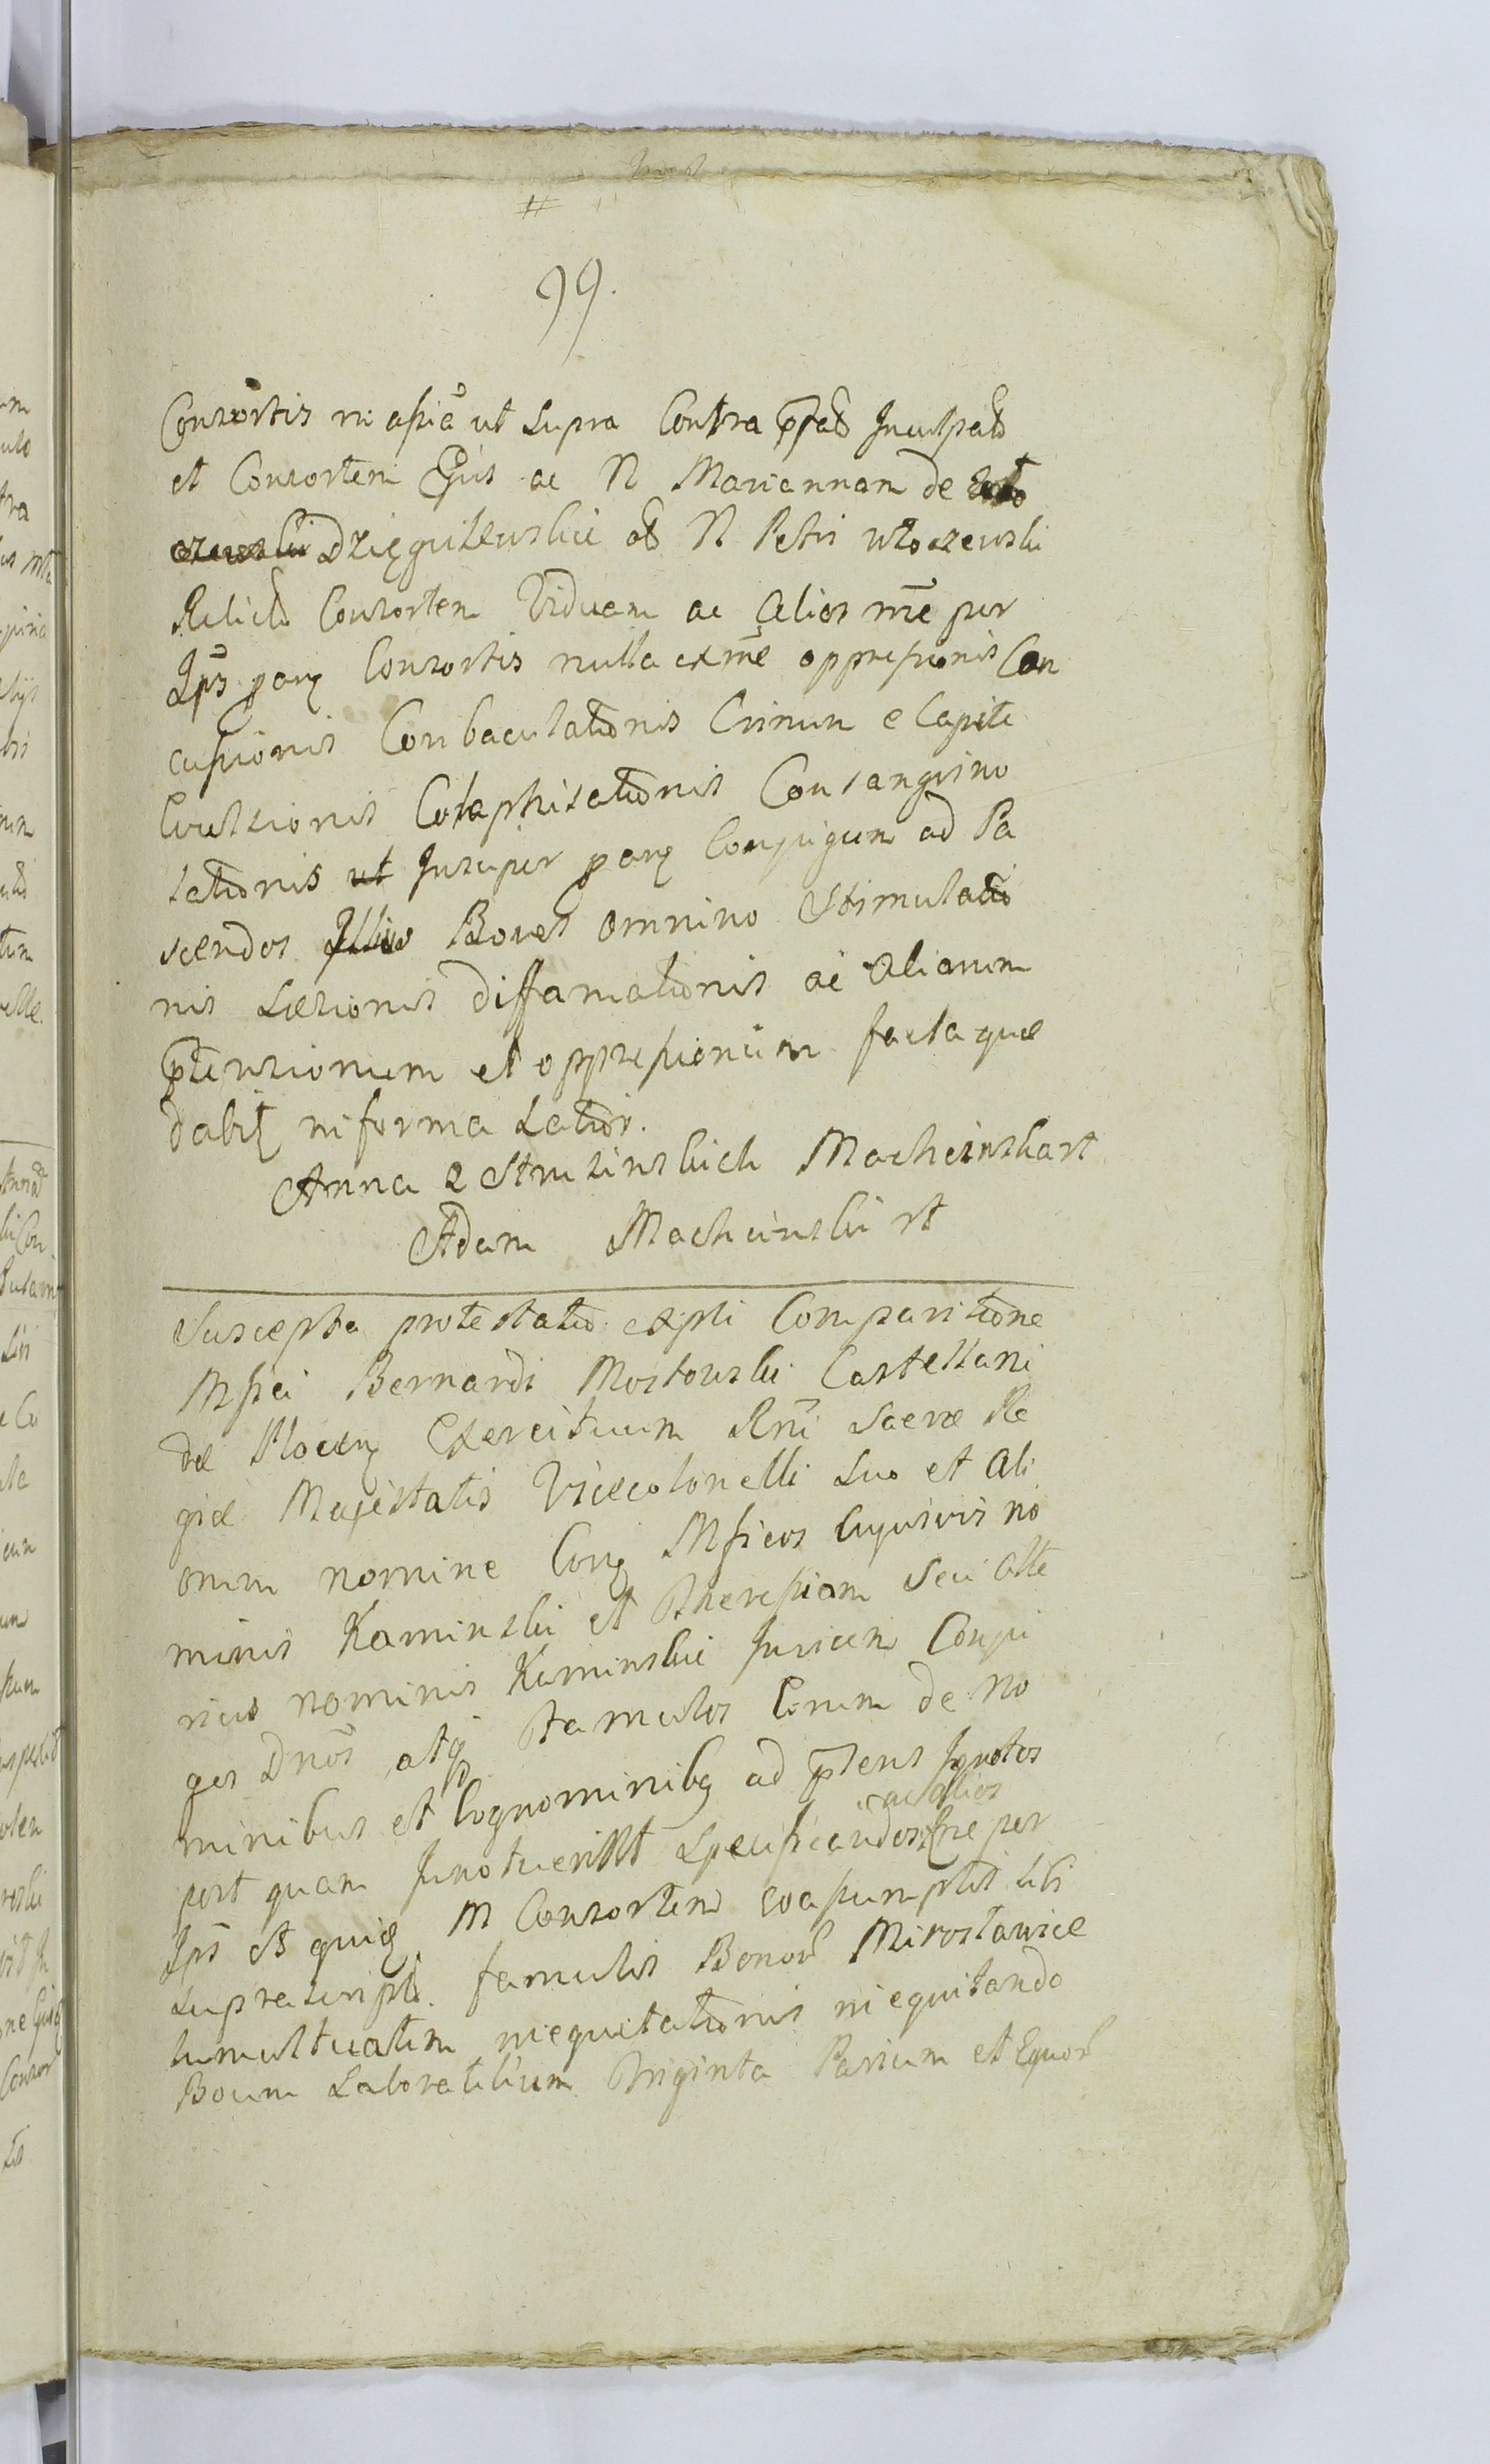 99.
Consortis in assã ut Supra Contra pfat Inculpat
et Consortem Ejus ac N Mariannam de
Dzięgielewskie ol N Petri Włoczewski
Relictã Consortem Viduam ac Alios rne per
Ips parq Consortis nulla exme oppressionis Con
cussionis Conbaculationis Crinum e Capite
Evulsionis Colaphisationis Consanguino
lationis ut Insuper parq Conjugum ad Pa
scendos Illius Boves omnino Stimulatio
nis Læsionis diffamationis ac Aliarum
ptensionum et oppressionum facta quæ
dabit in forma Latior.
Anna Z Strusinskich Macheinska rt
Adam Macheinski rt
Suscepta protestatio expti Comparitione
Mfici Bernardi Mostowski Castellani
dæ Plocen Exercituum Rni Sacræ Re
giæ Majestatis Vicecolonelli Suo et Ali
orum nomine Corq Mficos Cujusvis no
minis Kaminski et Theressiam seu Alte
rius nominis Kaminskie Juricem Conju
ges Dnos atq famulos Eorum de No
minibus et Cognominibq ad ptens Ignotos
ac Alios
post quam Innotuerint Specificandos rne per
Ips et quiq M Consortem coassumptis sibi
suprascript famulis Bonor Mirosławice
tumultuatim inequitationis inequitando
Boum Laboratilium Triginta Parium et Equor